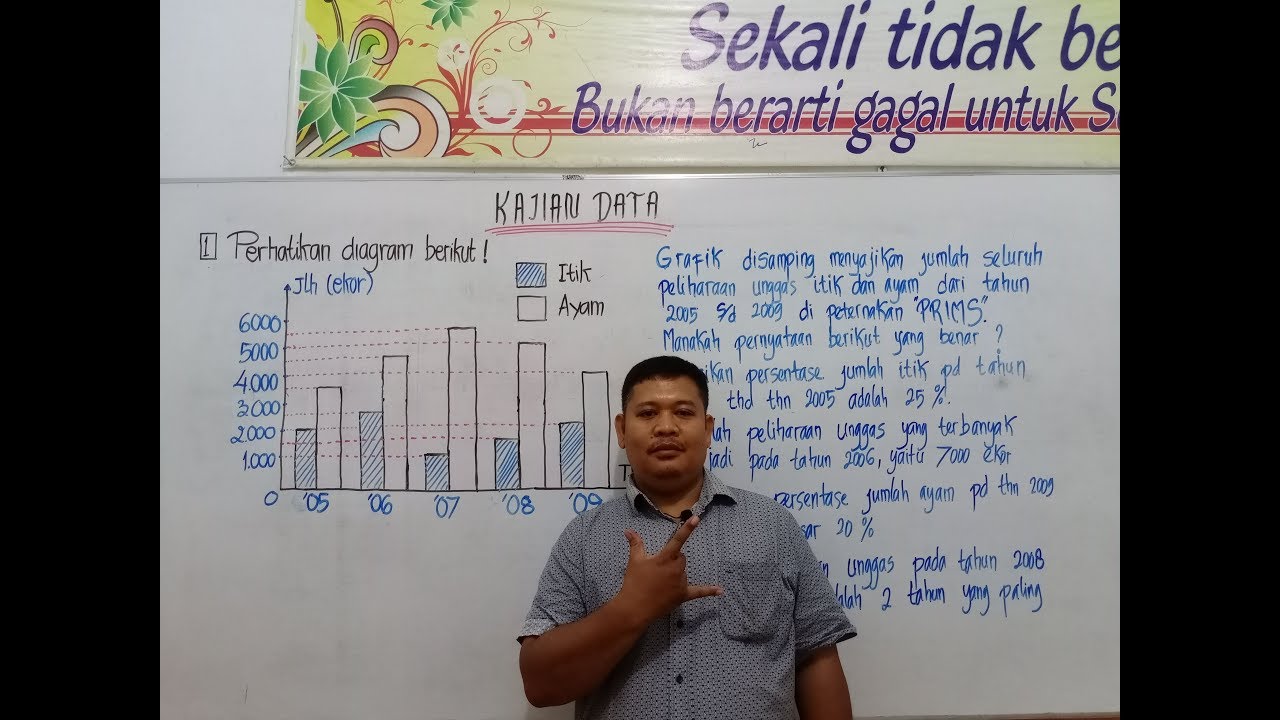 Sekali tidak be
Bukan berarti gagal untuk S
KAJIAN DATA
1 Perhatikan diagram berikut!
Jlh (ekor)
Itik
Ayam
6000
5000
4.000
3.000
2.000
1.000
0
'05 '06 '07 '08 '09
T
Grafik disamping menyajikan jumlah seluruh
peliharaan unggas itik dan ayam dari tahun
2005 s/d 2009 di peternakan "PRIMS".
Manakah pernyataan berikut yang benar ?
ikan persentase jumlah itik pd tahun
thd thn 2005 adalah 25 %.
lah peliharaan unggas yang terbanyak
jadi pada tahun 2006, yaitu 7000 ekor
persentase jumlah ayam pd thn 2009
sar 20 %
an unggas pada tahun 2008
lah 2 tahun yang paling